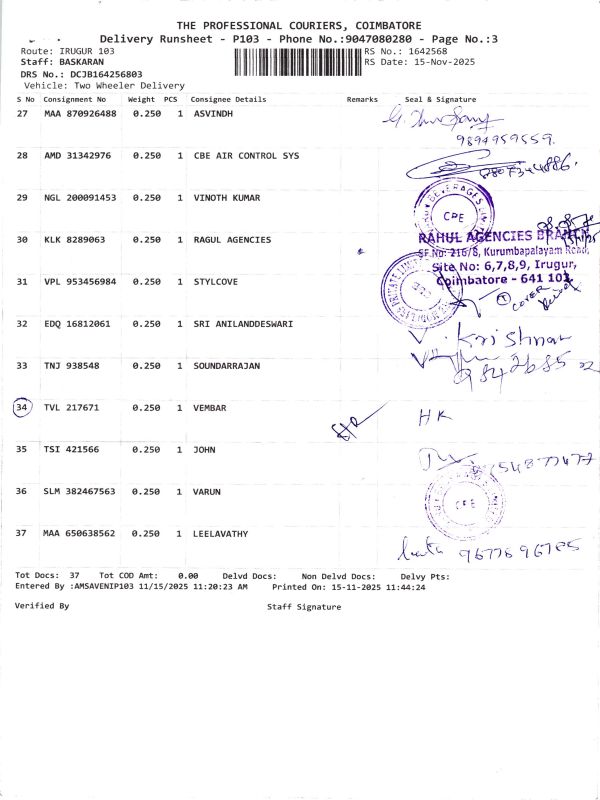 THE PROFESSIONAL COURIERS, COIMBATORE
Delivery Runsheet - P103 - Phone No.:9047080280 - Page No.:3
Route: IRUGUR 103 RS No.: 1642568
Staff: BASKARAN RS Date: 15-Nov-2025
DRS No.: DCJB164256803
Vehicle: Two Wheeler Delivery
S No Consignment No Weight PCS Consignee Details Remarks Seal & Signature
27 MAA 870926488 0.250 1 ASVINDH
9894959559.
28 AMD 31342976 0.250 1 CBE AIR CONTROL SYS
29 NGL 200091453 0.250 1 VINOTH KUMAR
CPE
30 KLK 8289063 0.250 1 RAGUL AGENCIES
RAHUL AGENCIES
SF.No: 216/8, Kurumbapalayam Road,
Site No: 6,7,8,9, Irugur,
Coimbatore - 641 103
31 VPL 953456984 0.250 1 STYLCOVE
PRIVATE LIMITED
COVER
32 EDQ 16812061 0.250 1 SRI ANILANDDESWARI
Krishnan
33 TNJ 938548 0.250 1 SOUNDARRAJAN
34 TVL 217671 0.250 1 VEMBAR HK
35 TSI 421566 0.250 1 JOHN
36 SLM 382467563 0.250 1 VARUN
CPE
37 MAA 650638562 0.250 1 LEELAVATHY
Tot Docs: 37 Tot COD Amt: 0.00 Delvd Docs: Non Delvd Docs: Delvy Pts:
Entered By :AMSAVENIP103 11/15/2025 11:20:23 AM Printed On: 15-11-2025 11:44:24
Verified By Staff Signature